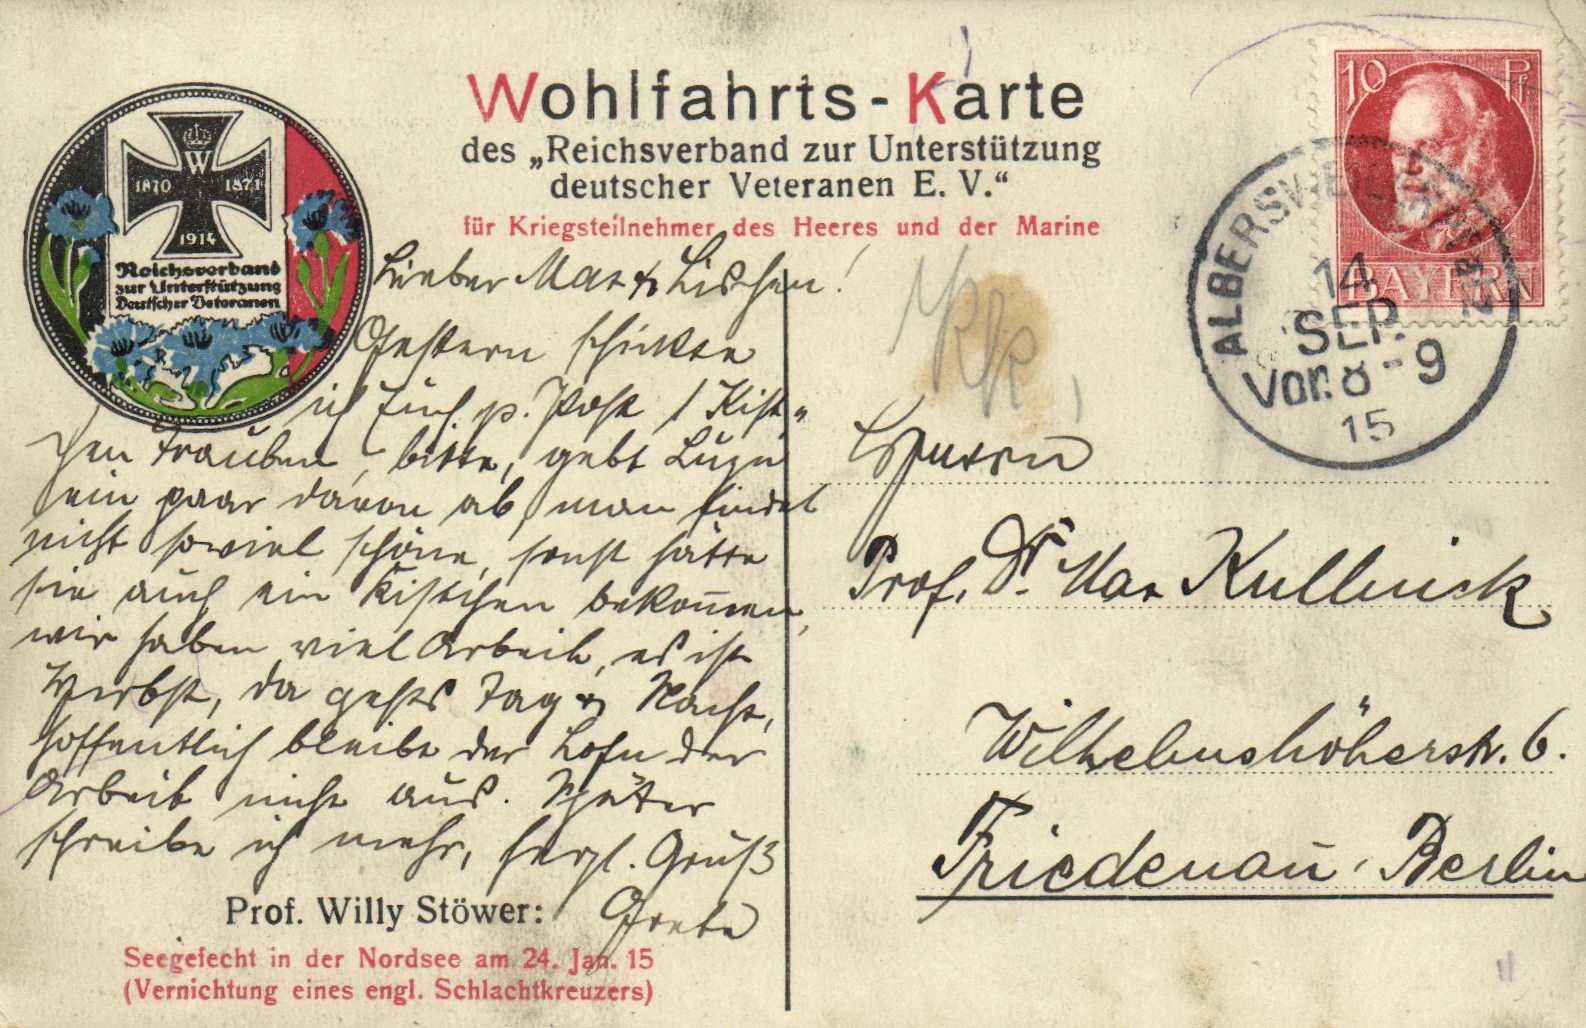 Wohlfahrts-Karte
des „Reichsverband zur Unterstützung
deutscher Veteranen E. V.“
für Kriegsteilnehmer des Heeres und der Marine
W
1870 1871
1914
Reichsverband
zur Unterstützung
Deutscher Veteranen
10 Pf
BAYERN
ALBERSWEILER (PFALZ)
14
SEP.
Vor. 8-9
15
Lieber Max & Lischen!
Gestern schickte
ich Euch p. Post 1 Kist-
chen Trauben, bitte, gebt
ein paar davon ab, man findet
nicht soviel schöne, sonst hätte
sie auch ein Kistchen bekommen,
wir haben viel Arbeit, es ist
Herbst, da gehts Tag & Nacht,
hoffentlich bleibt der Lohn der
Arbeit nicht aus. Später
schreibe ich mehr, herzl. Gruß
Grete
Herrn
Prof. Dr. Max Kullnick
Wilhelmshöherstr. 6.
Friedenau, Berlin
Prof. Willy Stöwer:
Seegefecht in der Nordsee am 24. Jan. 15
(Vernichtung eines engl. Schlachtkreuzers)